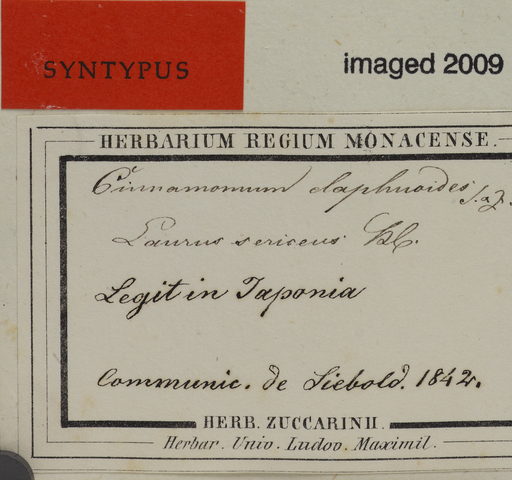 SYNTYPUS
imaged 2009
HERBARIUM REGIUM MONACENSE.
Cinnamomum daphnoides S. & Z.
Laurus sericeus
Legit in Japonia
Communic. de Siebold. 1842.
HERB. ZUCCARINII.
Herbar. Univ. Ludov. Maximil.